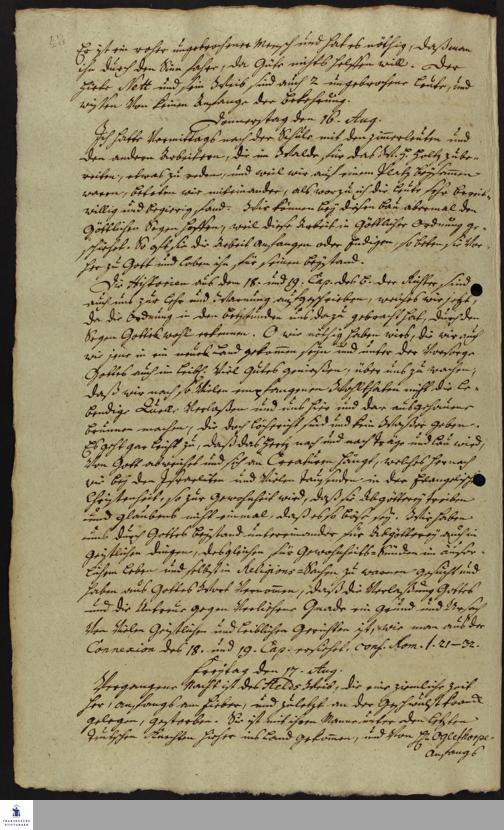 Er ist ein roher ungebrochener Mensch und hat es nöthig, daß man
ihn durch den Sinn fahre, da Güte nichts helffen will. Der
Nett und sein Weib sind auch 2 ungebrochene Leute, und
wissen von keinem Anfange der Bekehrung.
Donnerstag den 16. Aug.
Ich hatte Vormittags nach der Schule mit den Zimmerleuten und
den andern Arbeitern, die im Walde, für das Holtz zube-
reiten, etwas zu reden, und weil wir auf einem Platz beysammen
waren, beteten wir miteinander, als worzu ich die Leute sehr bereit-
willig und begierig fand. Wir können bey diesem Bau abermal den
Göttlichen Segen hoffen, weil diese Arbeit in Göttlicher Ordnung ge-
schiehet. So oft sie die Arbeit anfangen oder endigen, so beten sie vor-
her zu Gott und loben ihn für seinen Beystand.
Die Historien aus dem 18. und 19. Cap. des B. der Richter sind
auch uns zur Lehre und Warnung aufgeschrieben, welches wir jetzt,
da die Ordnung in den Betstunden uns dazu gebracht hat, durch den
Segen Gottes wohl erkennen. O wie nöthig haben wirs, die wir auch
wie jene in ein neues Land gekommen seyn und unter der Vorsorge
Gottes auch im leibl. viel Gutes genießen, über uns zu wachen,
daß wir nach so vielen empfangenen Wohlthaten nicht die le-
bendige Quelle verlaßen und uns hie und da ausgehauene
Brunnen machen, die doch löchericht sind und kein Waßer geben.
Es geht gar leicht zu, daß das Hertz nach und nach träge und lau wird,
von Gott abweichet und sich an Creaturen hängt, welches hernach
wie bey den Israeliten und vielen tausenden in der Evangelischen
Christenheit, so zur Gewohnheit wird, daß sie Abgötterey treiben
und glaubens nicht einmal, daß es so böse sey. Wir haben
uns durch Gottes Beystand untereinander für Abgötterey auch in
geistlichen Dingen, desgleichen für Gewohnheits-Sünden im äußer-
lichen Leben und selbst in Religions-Sachen zu warnen gesucht und
haben aus Gottes Wort vernommen, daß die Verlaßung Gottes
und die Untreue gegen verliehene Gnade ein Grund und Ursach
von vielen Geistlichen und leiblichen Gerichten ist, wie man aus der
Connexion des 18. und 19. Cap. ersiehet. conf. Rom. 1. 21–32.
Freytag den 17. Aug.
Vergangene Nacht ist des Helds Weib, die eine ziemliche Zeit
her, anfangs am Fieber, und zuletzt an der Geschwulst kranck
gelegen, gestorben. Sie ist mit ihrem Manne unter den letzten
teutschen Knechten hieher ins Land gekommen, und von H. Oglethorpe
Anfangs
FRANCKESCHE
STIFTUNGEN